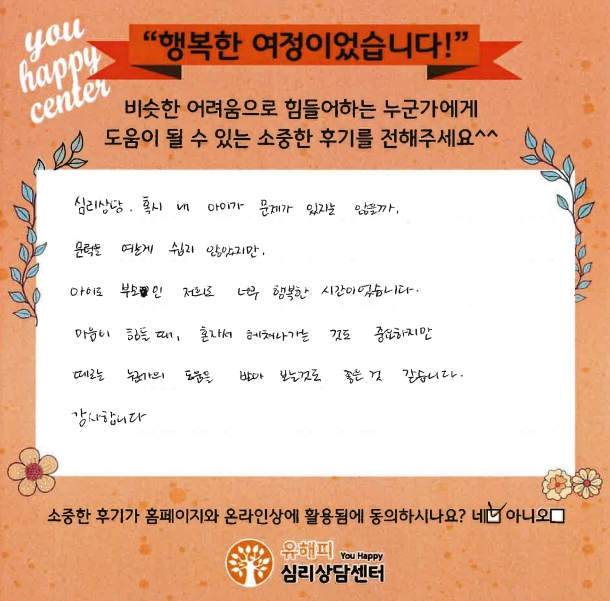 you
happy
center
“행복한 여정이었습니다!”
비슷한 어려움으로 힘들어하는 누군가에게
도움이 될 수 있는 소중한 후기를 전해주세요^^
심리상담. 혹시 내 아이가 문제가 있지는 않을까.
문턱을 여는게 쉽지 않았지만.
아이도 부모인 저희도 너무 행복한 시간이었습니다.
마음이 힘들 때, 혼자서 헤쳐나가는 것도 중요하지만
때로는 누군가의 도움을 받아 보는것도 좋은 것 같습니다.
감사합니다
소중한 후기가 홈페이지와 온라인상에 활용됨에 동의하시나요? 네☑ 아니오□
유해피 You Happy
심리상담센터